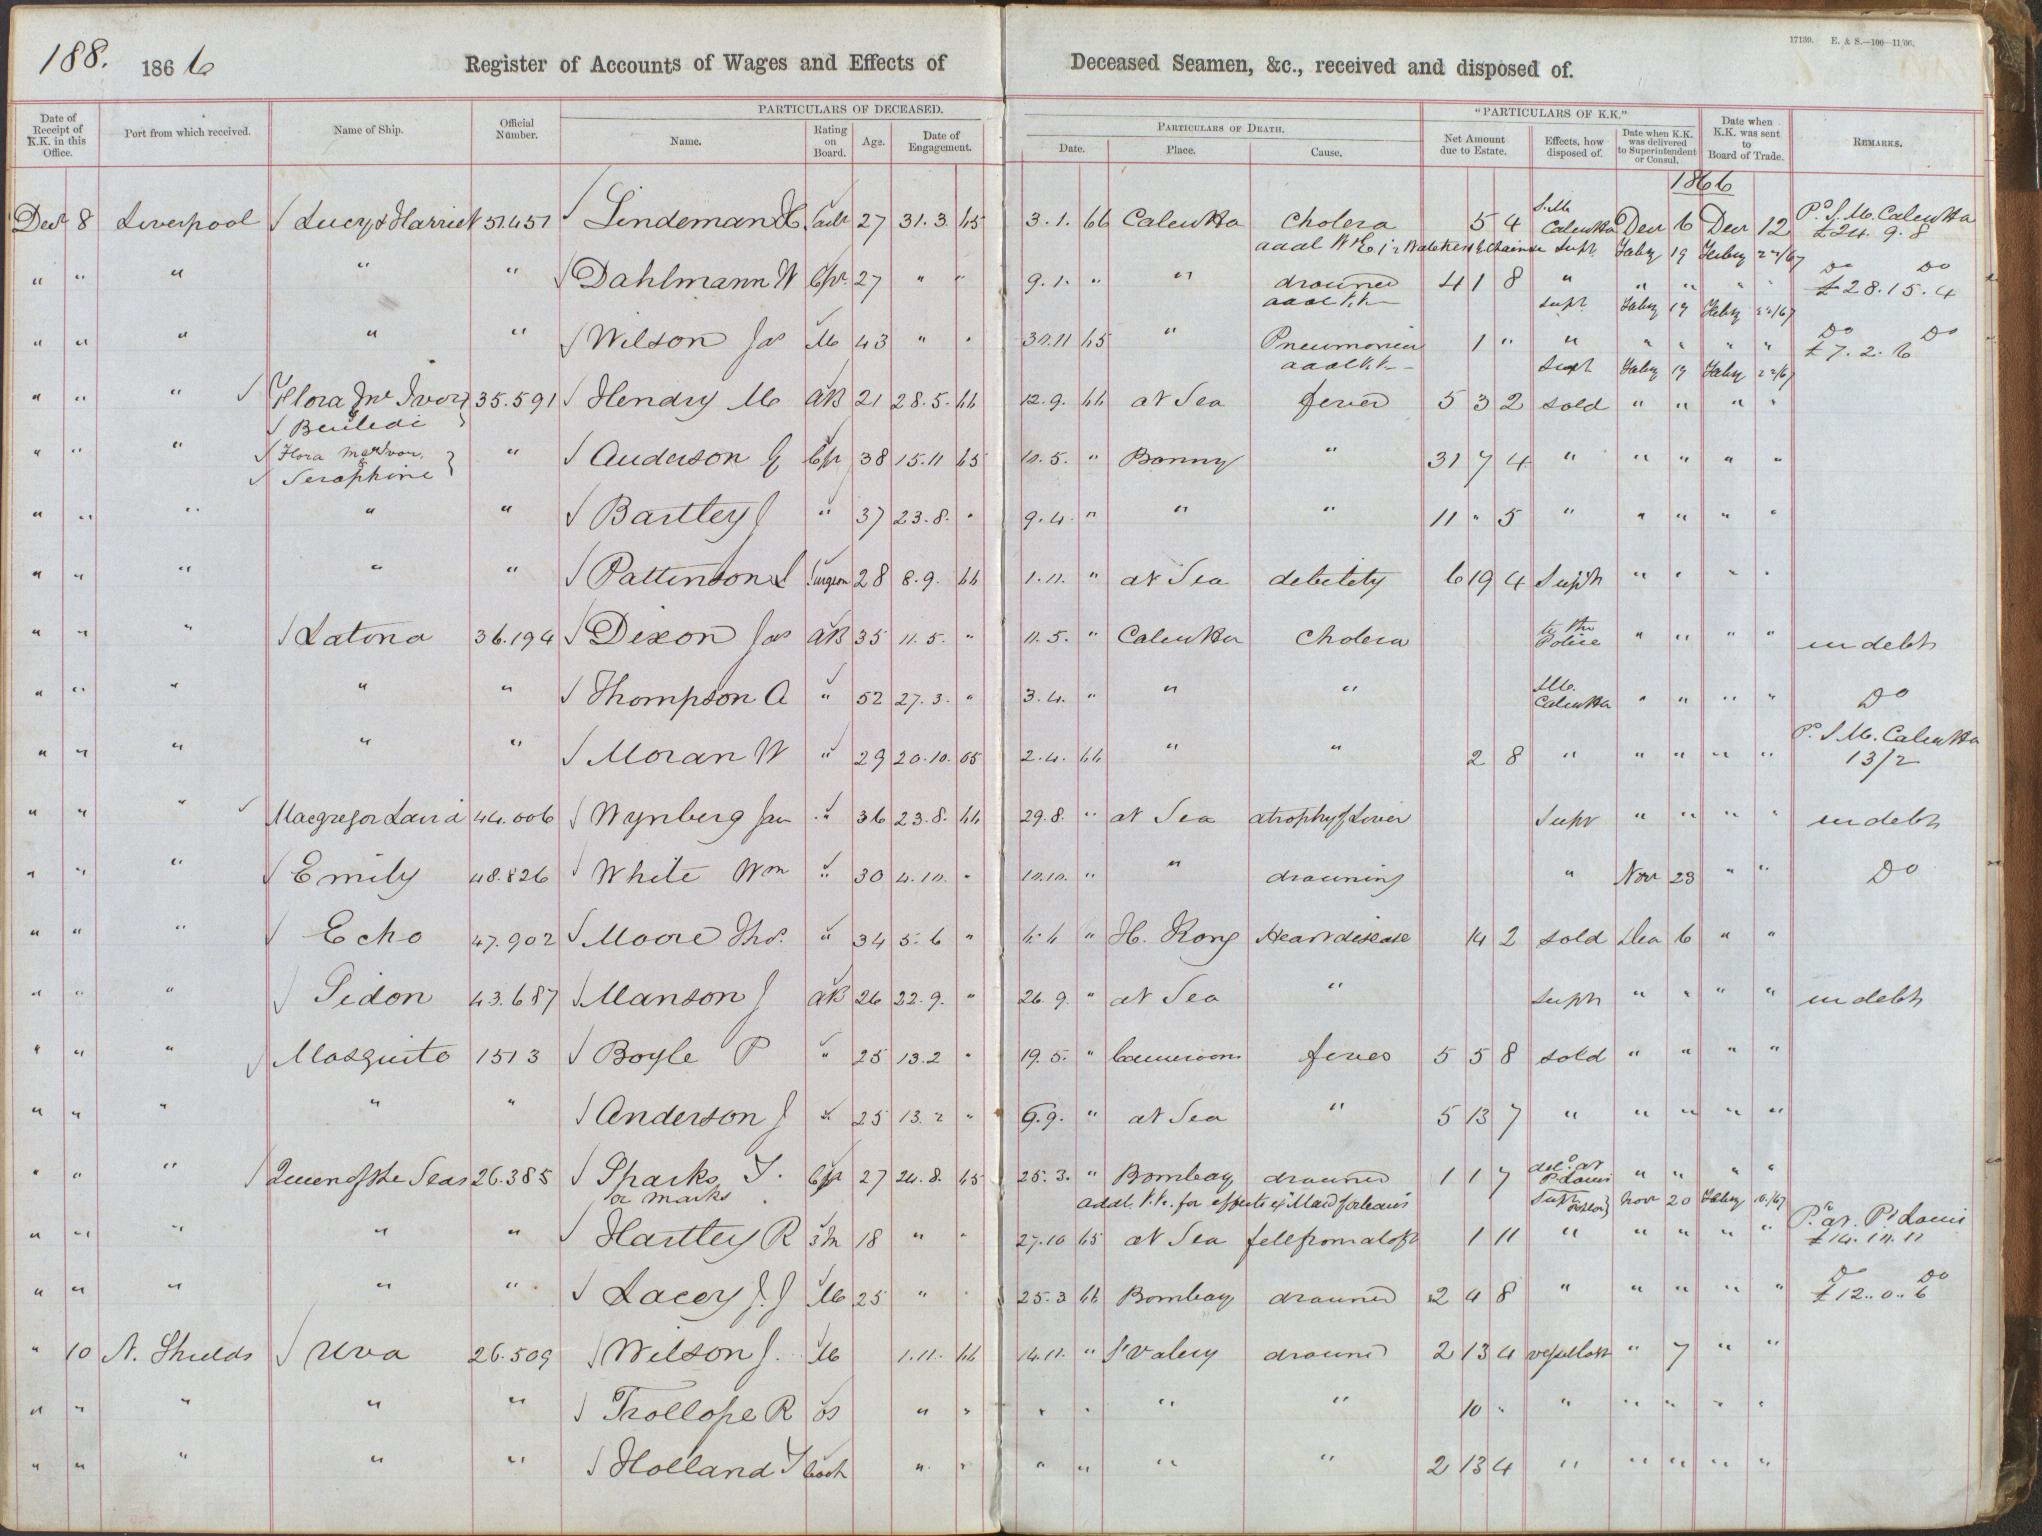 188. 1866
Register of Accounts of Wages and Effects of Deceased Seamen, &c., received and disposed of.
17139. E. & S.—100—11/06.
PARTICULARS OF DECEASED.
"PARTICULARS OF K.K."
Date of Receipt of K.K. in this Office.
Port from which received.
Name of Ship.
Official Number.
Name.
Rating on Board.
Age.
Date of Engagement.
PARTICULARS OF DEATH.
Date.
Place.
Cause.
Net Amount due to Estate.
Effects, how disposed of.
Date when K.K. was delivered to Superintendent or Consul.
Date when K.K. was sent to Board of Trade.
REMARKS.
1866
Decr 8 Liverpool Lucy & Harriet 51.451 Lindeman H 27 31.3. 65 3.1. 66 Calcutta Cholera 5 4 S.M. Calcutta Decr 6 Decr 12 Pd S.M. Calcutta £24.9.8
Supt Feby 19 Feby 22/67
" " " " " Dahlmann W 27 " " 9.1. " " drowned 4 1 8 " " " " " Do Do £28.15.4
Supt Feby 19 Feby 22/67
" " " " " Wilson Jas M 43 " " 30.11 65 " Pneumonia 1 " " " " " " Do Do £7.2.6
Supt Feby 19 Feby 22/67
" " " Flora Mc Ivor & 35.591 Hendry M AB 21 28.5. 66 12.9. 66 at Sea fever 5 3 2 sold " " " "
" " " Flora Mac Ivor & Seraphine " Anderson G 38 15.11 65 10.5. " Bonny " 31 7 4 " " " " "
" " " " " Bartley J " 37 23.8. " 9.4. " " " 11 " 5 " " " " "
" " " " " Pattinson Surgeon 28 8.9. 66 1.11. " at Sea debility 6 19 4 Supt " " " "
" " " Latona 36.194 Dixon Jas AB 35 11.5. " 11.5. " Calcutta Cholera to the Police " " " " in debt
" " " " " Thompson A " 52 27.3. " 3.4. " " " S.M. Calcutta " " " " Do
" " " " " Moran W " 29 20.10. 65 2.4. 66 " " 2 8 " " " " " Pd S.M. Calcutta 13/2
" " " Macgregor Laird 44.006 Wynberg Jan " 36 23.8. 66 29.8. " at Sea atrophy of Liver Supt " " " " in debt
" " " Emily 48.826 White Wm " 30 4.10. " 10.10. " " drowning " Nov 23 " " Do
" " " Echo 47.902 Moore Thos. " 34 5.6 " 6.6 " H. Kong Heart disease 14 2 sold Dec 6 " "
" " " Sidon 43.687 Manson J AB 26 22.9. " 26.9. " at Sea " Supt " " " " in debt
" " " Mosquito 1513 Boyle P " 25 13.2 " 19.5. " Cameroons fever 5 5 8 sold " " " "
" " " " " Anderson J " 25 13.2 " 6.9. " at Sea " 5 13 7 " " " " "
" " " Queen of the Seas 26.385 Sparks T. 27 24.8. 65 25.3. " Bombay drowned 1 1 7 P. Louis " " " "
or Marks addl. K.K. for effects ex "Maid of Orleans" Supt Nov 20 Feby 10/67
" " " " " Hartley R 3 M 18 " " 27.10 65 at Sea fell from aloft 1 11 " " " " " Pd at Pt Louis £14.14.11
" " " " " Lacey J.J M 25 " " 25.3 66 Bombay drowned 2 4 8 " " " " " Do Do £12..0..6
" 10 N. Shields Uva 26.509 Wilson J. M 1.11. 66 14.11. " St Valery drowned 2 13 4 vessel lost " 7 " "
" " " " " Trollope R OS " " " " " " 10 " " " " " "
" " " " " Holland T Cook " " " " " " 2 13 4 " " " " "